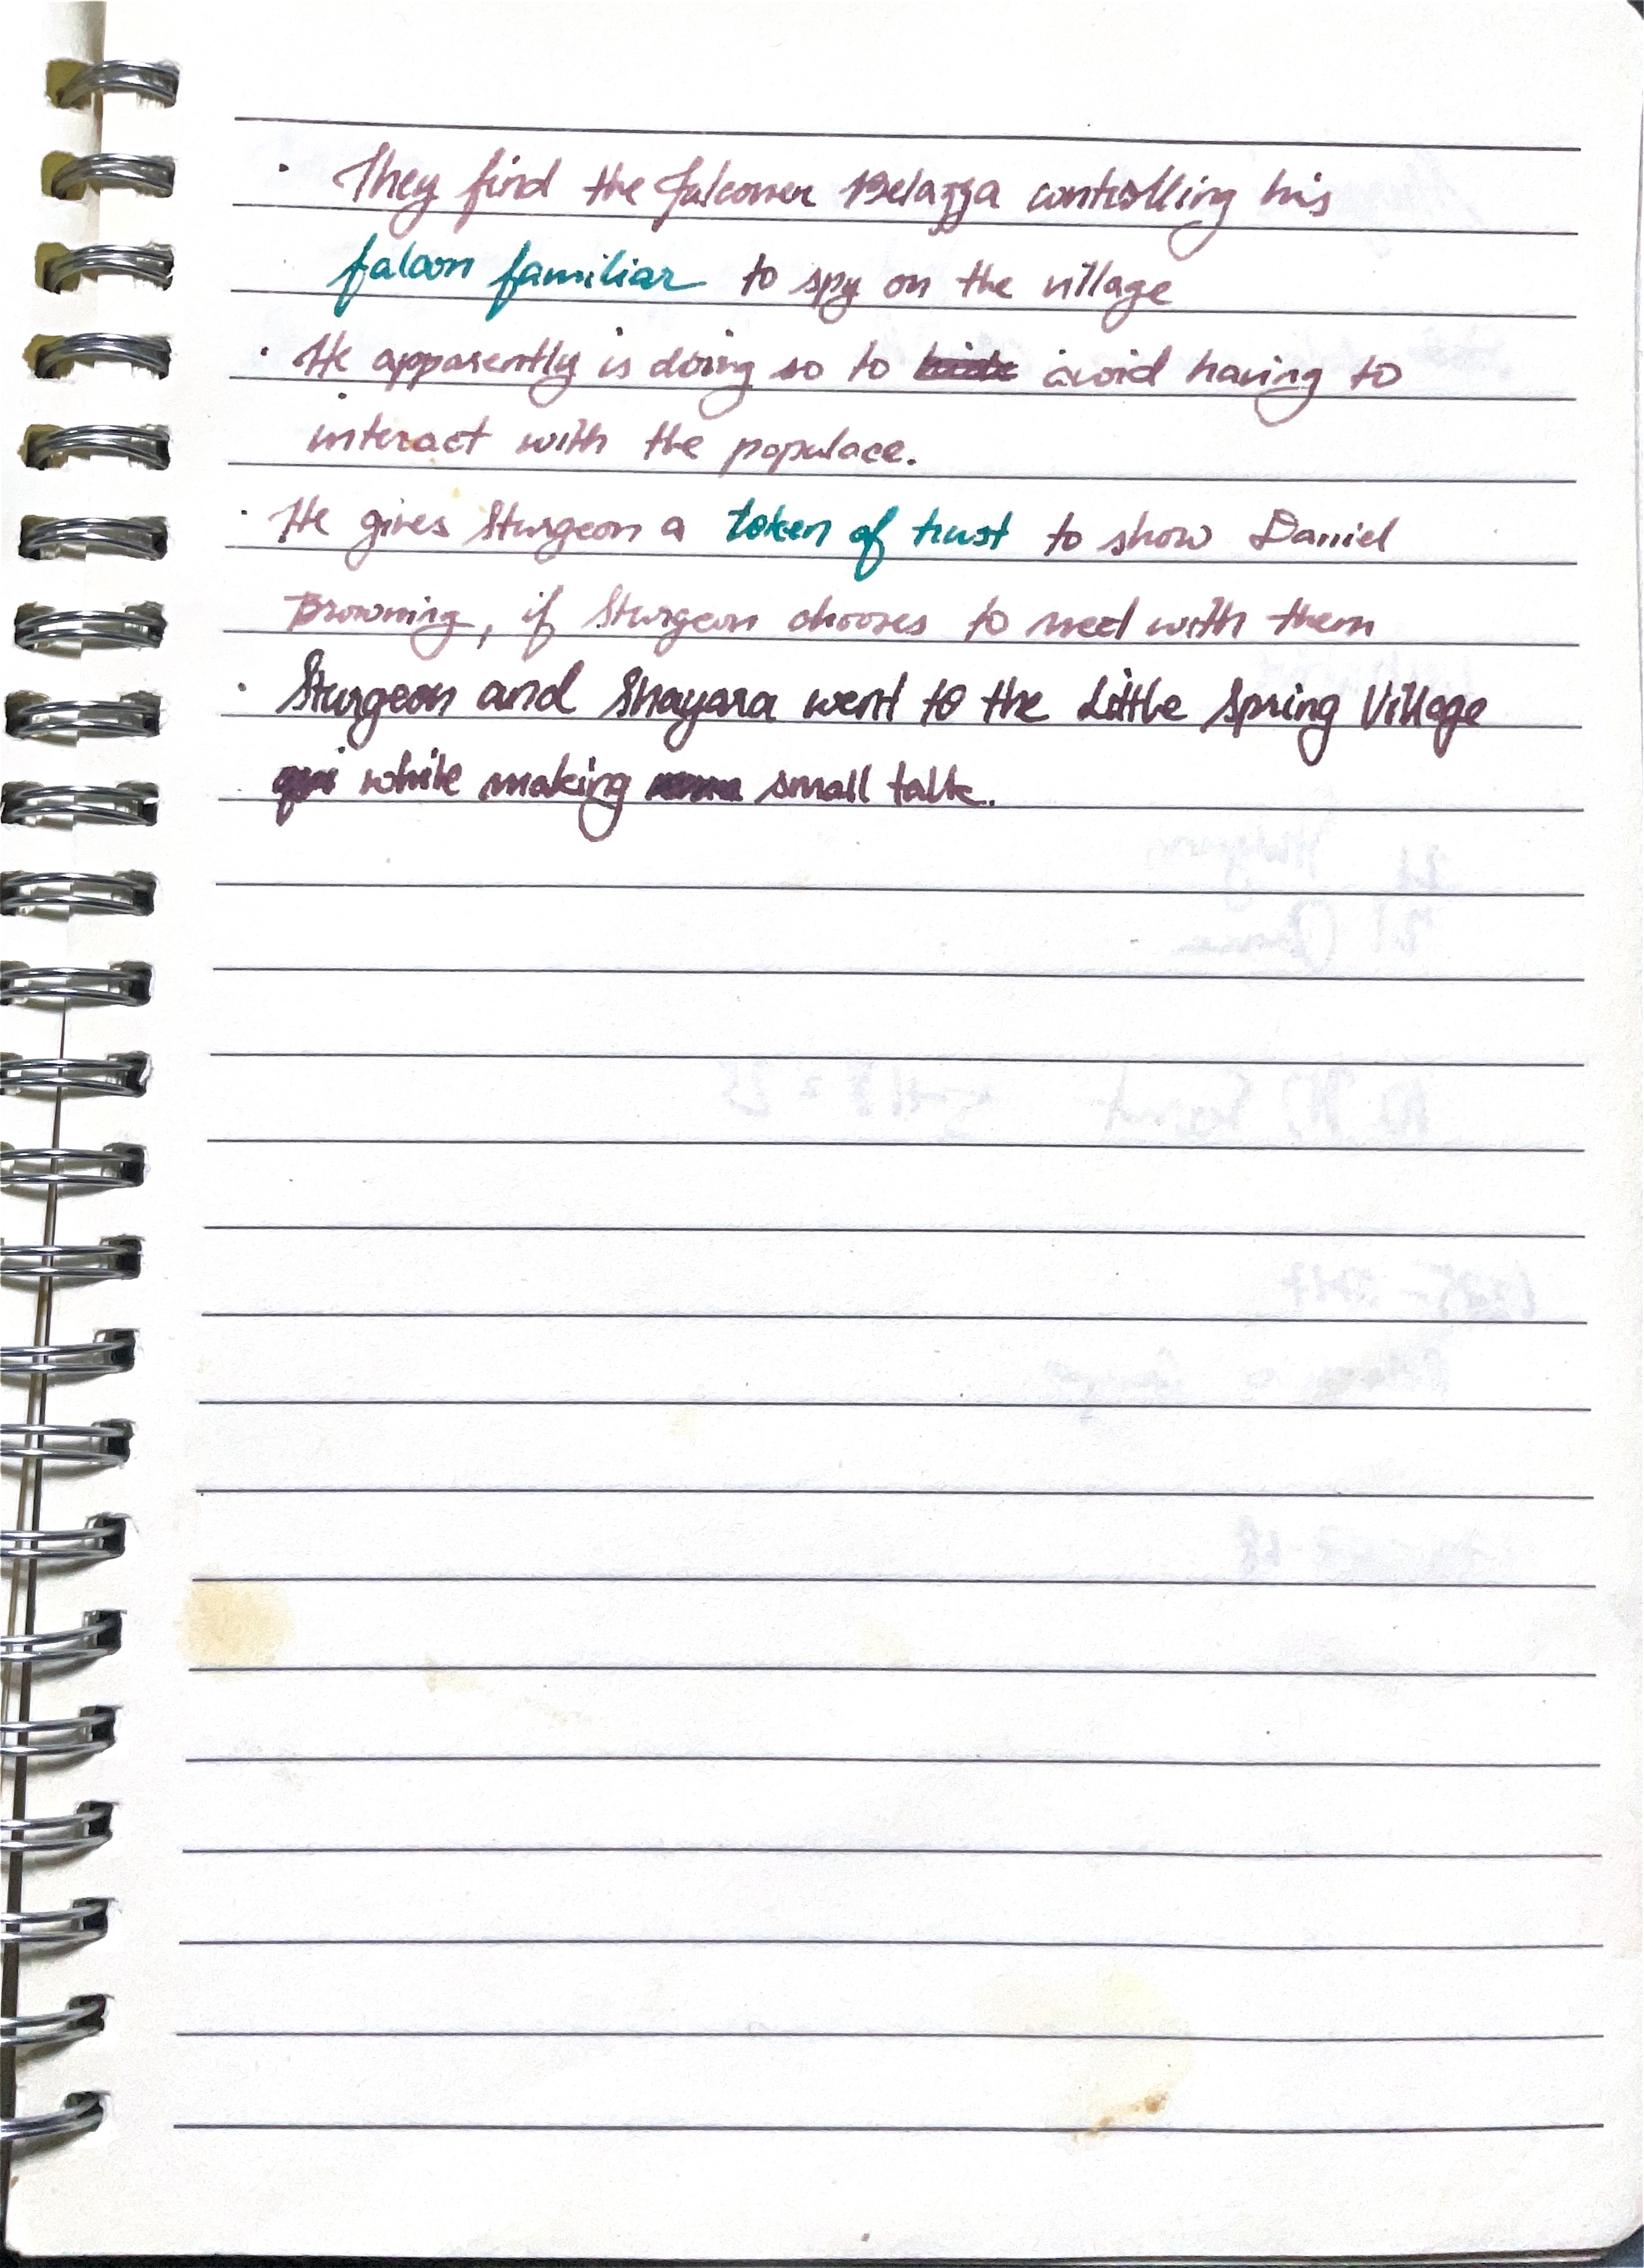 · They find the falconer Belazza controlling his
falcon familiar to spy on the village
· He apparently is doing so to avoid having to
interact with the populace.
· He gives Sturgeon a token of trust to show Daniel
Browning, if Sturgeon chooses to meet with them
· Sturgeon and Shayara went to the Little Spring Village
while making small talk.